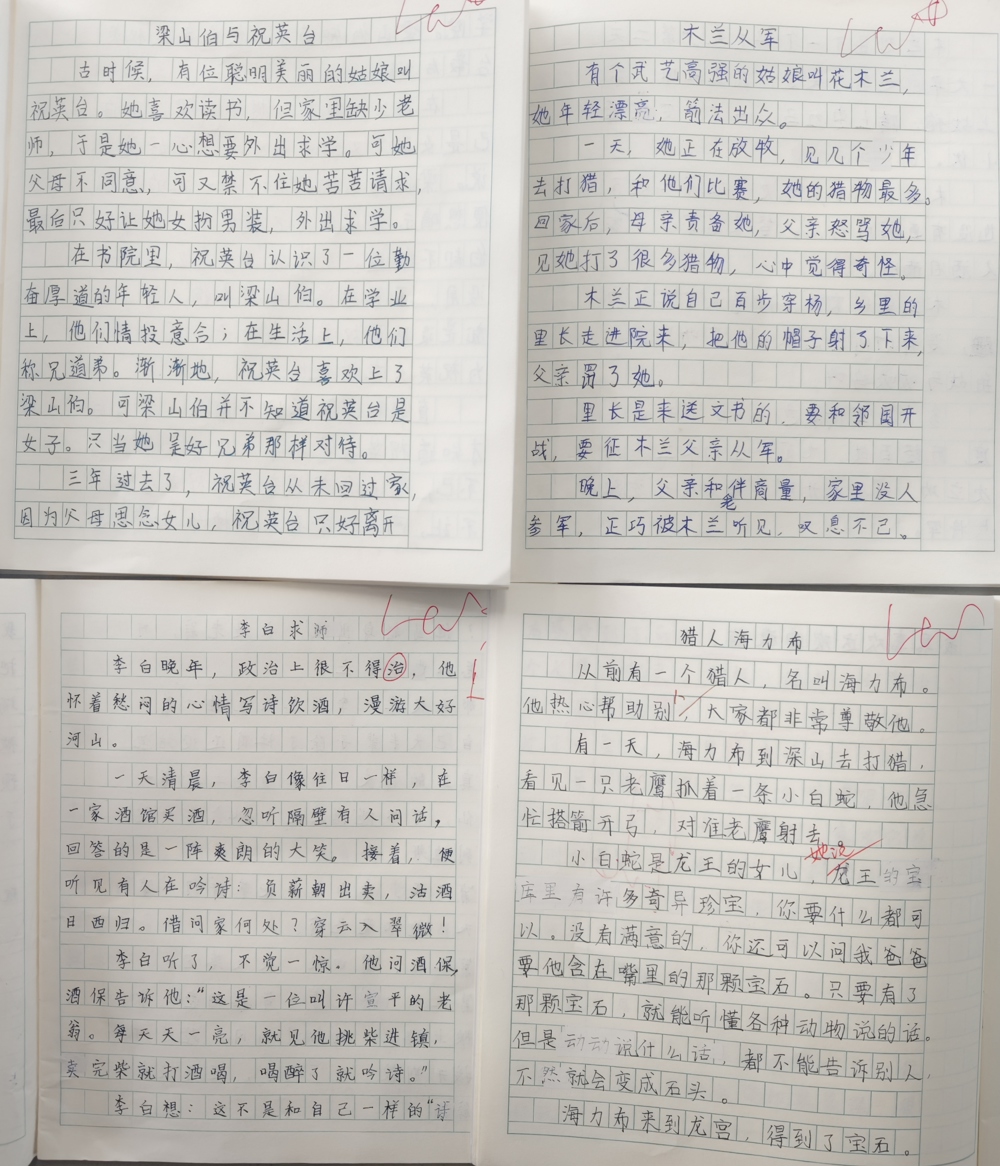 梁山伯与祝英台
古时候，有位聪明美丽的姑娘叫
祝英台。她喜欢读书，但家里缺少老
师，于是她一心想要外出求学。可她
父母不同意，可又禁不住她苦苦请求，
最后只好让她女扮男装，外出求学。
在书院里，祝英台认识了一位勤
奋厚道的年轻人，叫梁山伯。在学业
上，他们情投意合；在生活上，他们
称兄道弟。渐渐地，祝英台喜欢上了
梁山伯。可梁山伯并不知道祝英台是
女子。只当她是好兄弟那样对待。
三年过去了，祝英台从未回过家，
因为父母思念女儿，祝英台只好离开
木兰从军
有个武艺高强的姑娘叫花木兰，
她年轻漂亮，箭法出众。
一天，她正在放牧，见几个少年
去打猎，和他们比赛，她的猎物最多。
回家后，母亲责备她，父亲怒骂她，
见她打了很多猎物，心中觉得奇怪。
木兰正说自己百步穿杨，乡里的
里长走进院来，把他的帽子射了下来，
父亲骂了她。
里长是来送文书的，要和邻国开
战，要征木兰父亲从军。
晚上，父亲和老伴商量，家里没人
参军，正巧被木兰听见，叹息不已。
李白求师
李白晚年，政治上很不得治，他
怀着愁闷的心情写诗饮酒，漫游大好
河山。
一天清晨，李白像往日一样，在
一家酒馆买酒，忽听隔壁有人问话，
回答的是一阵爽朗的大笑。接着，便
听见有人在吟诗：负薪朝出卖，沽酒
日西归。借问家何处？穿云入翠微！
李白听了，不觉一惊。他问酒保，
酒保告诉他：“这是一位叫许宣平的老
翁。每天天一亮，就见他挑柴进镇，
卖完柴就打酒喝，喝醉了就吟诗。”
李白想：这不是和自己一样的“诗
猎人海力布
从前有一个猎人，名叫海力布。
他热心帮助别人，大家都非常尊敬他。
有一天，海力布到深山去打猎，
看见一只老鹰抓着一条小白蛇，他急
忙搭箭开弓，对准老鹰射去
小白蛇是龙王的女儿，她说龙王的宝
库里有许多奇异珍宝，你要什么都可
以。没有满意的，你还可以问我爸爸
要他含在嘴里的那颗宝石。只要有了
那颗宝石，就能听懂各种动物说的话。
但是动动说什么话，都不能告诉别人，
不然就会变成石头。
海力布来到龙宫，得到了宝石。